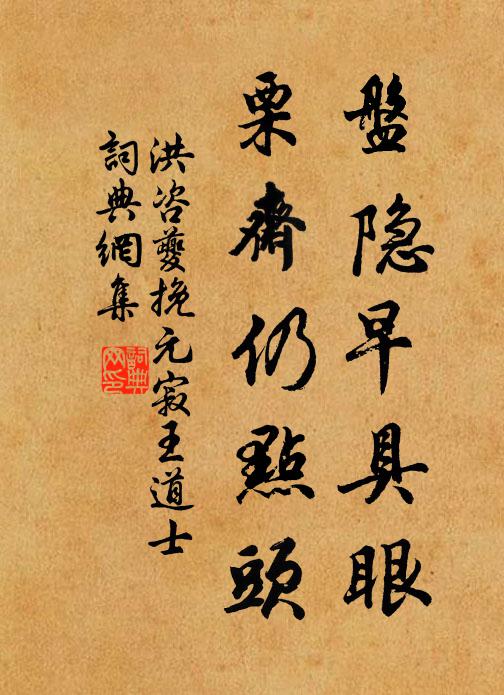 盤隐早具眼
栗齋仍點頭
洪咨夔挽元寂王道士
詞典網集
詞典網印